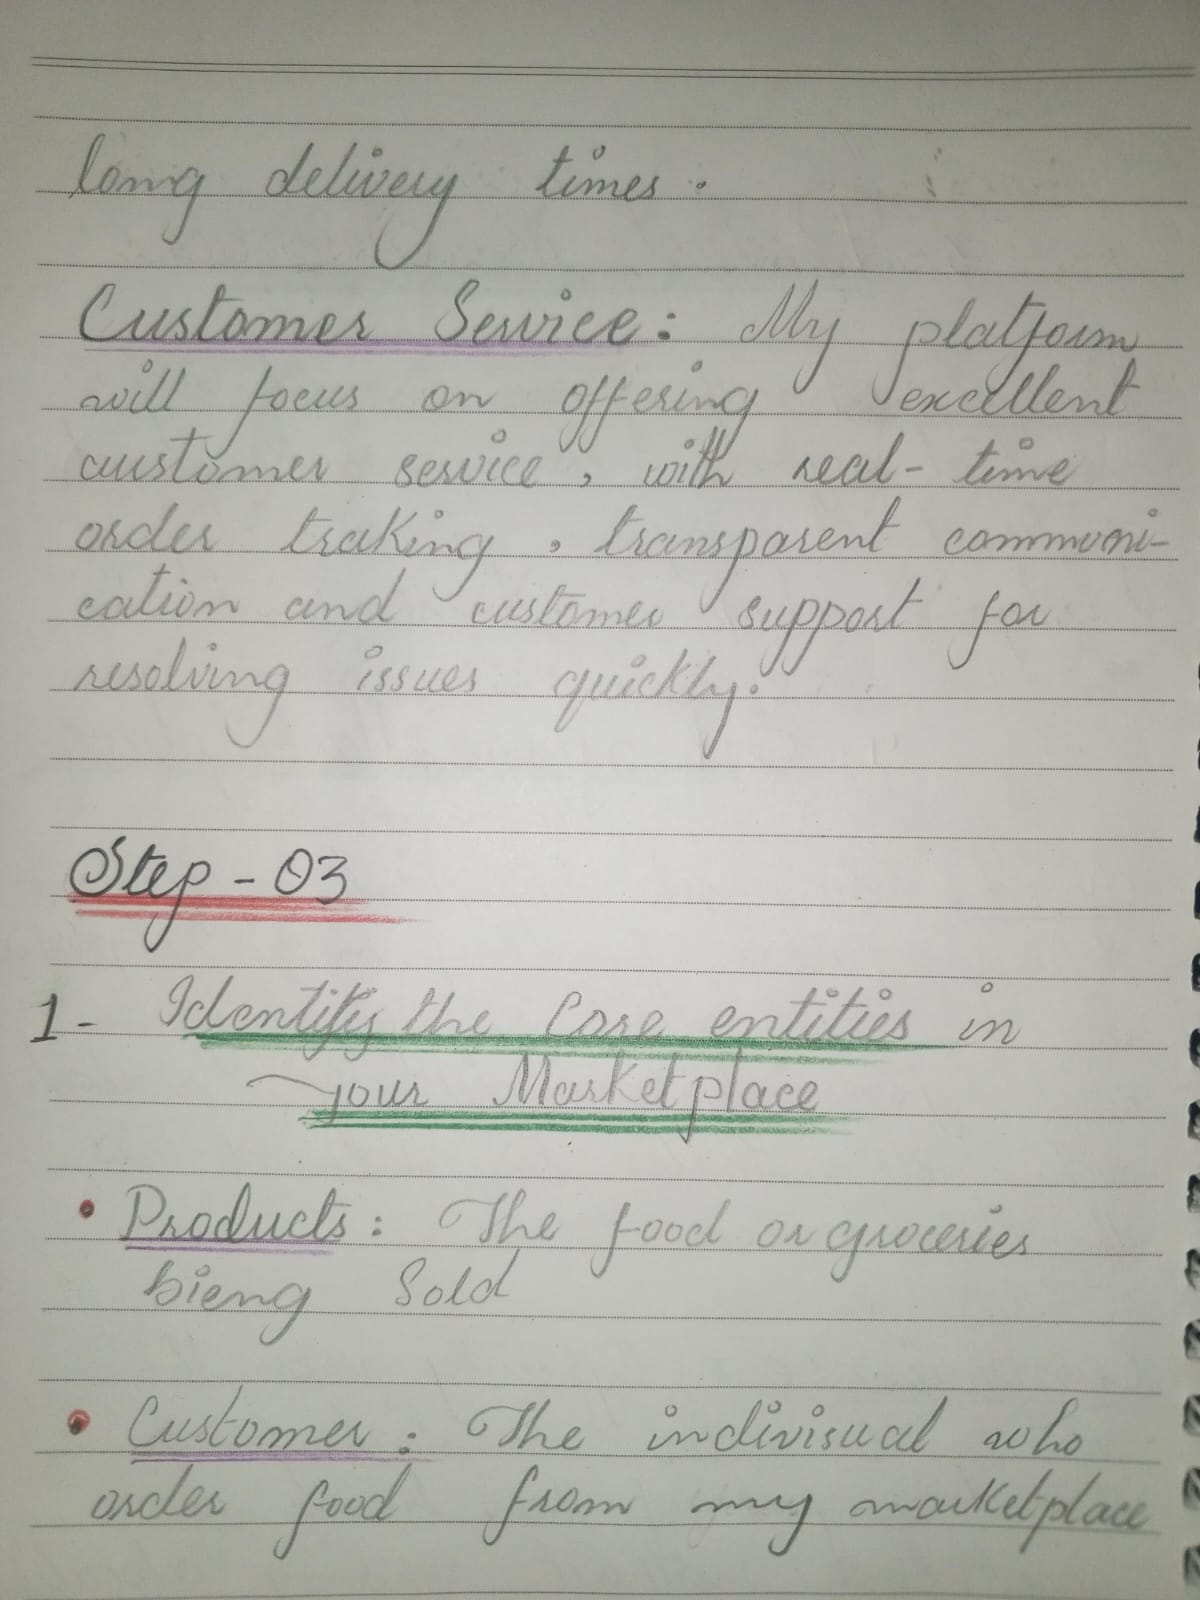 long delivery times.
Customer Service: My platform
will focus on offering excellent
customer service, with real-time
order traking, transparent communi-
cation and customer support for
resolving issues quickly.
Step-03
1- Identify the Core entities in
your Marketplace
• Products: The food or groceries
bieng Sold
• Customer: The indivisual who
order food from my marketplace